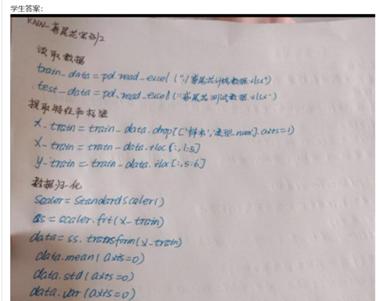 学生答案：
KNN_鸢尾花实验2
读取数据
train_data = pd.read_excel("鸢尾花训练数据.xlsx")
test_data = pd.read_excel("鸢尾花测试数据.xlsx")
提取特征和标签
x_train = train_data.drop(['样本', axis=1)
x_train = train_data.iloc[:,1:5]
y_train = train_data.iloc[:,5:6]
数据归一化
scaler = StandardScaler()
ss = scaler.fit(x_train)
data = ss.transform(x_train)
data.mean(axis=0)
data.std(axis=0)
data.var(axis=0)